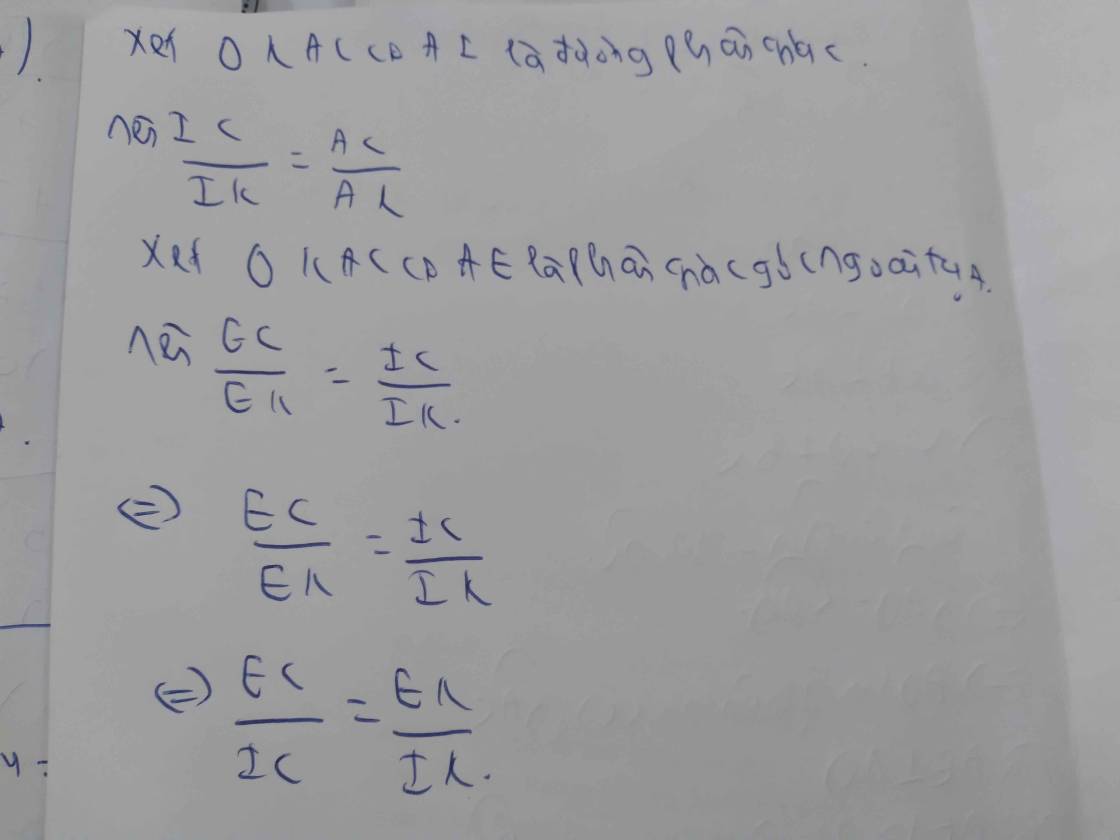 ).
Xét Δ KAC có AI là đường phân giác.
nên IC/IK = AC/AK
Xét Δ KAC có AE là phân giác góc ngoài tại A.
nên EC/EK = IC/IK.
⇔ EC/EK = IC/IK
⇔ EC/IC = EK/IK.